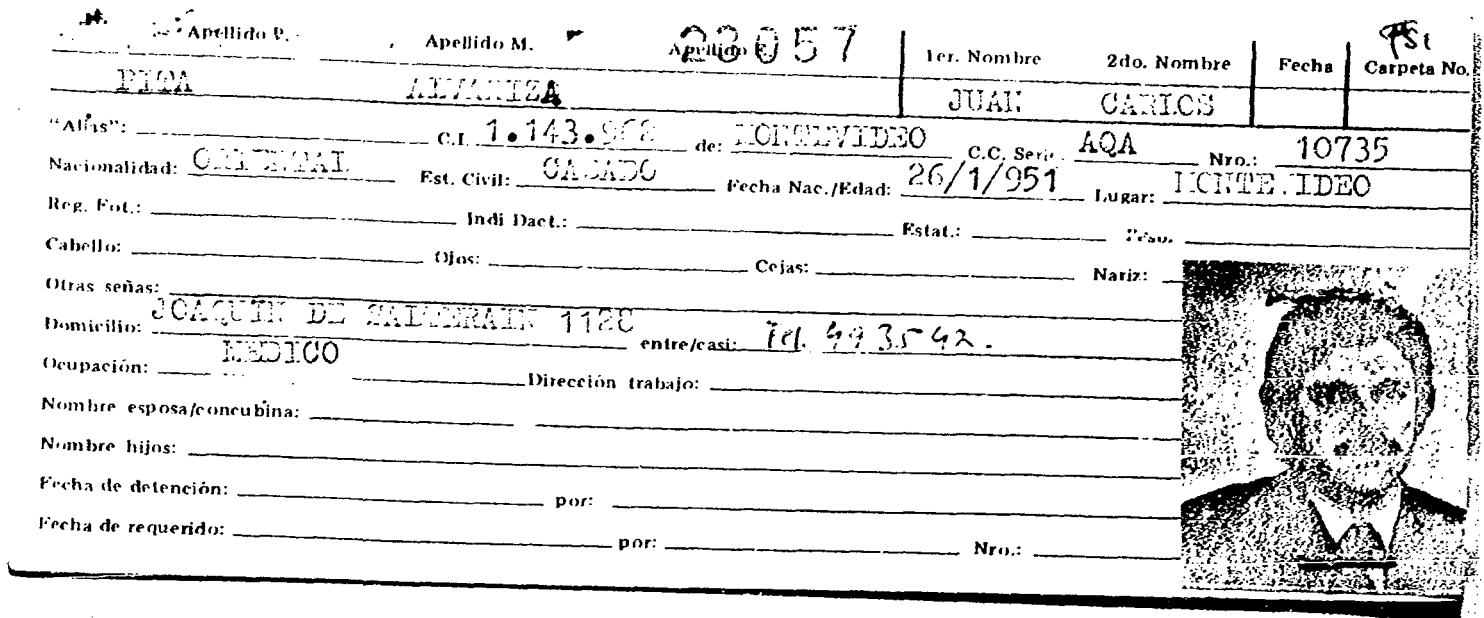 Apellido P. Apellido M. Apellido E. 23057 1er. Nombre 2do. Nombre Fecha Carpeta No.
PITA ALVARIZA JUAN CARLOS
"Alias": C.I. 1.143.968 de: MONTEVIDEO C.C. Serie AQA Nro.: 10735
Nacionalidad: ORIENTAL Est. Civil: CASADO Fecha Nac./Edad: 26/1/951 Lugar: MONTEVIDEO
Reg. Fot.: Indi Dact.: Estat.: Peso.
Cabello: Ojos: Cejas: Nariz:
Otras señas:
Domicilio: JOAQUIN DE SALTERAIN 1128 entre/casi: Tel. 493542.
Ocupación: MEDICO Dirección trabajo:
Nombre esposa/concubina:
Nombre hijos:
Fecha de detención: por:
Fecha de requerido: por: Nro.: